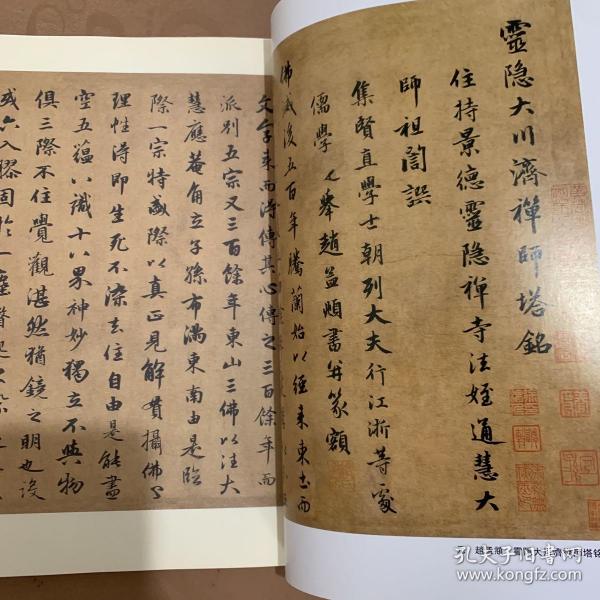 靈隱大川濟禪師塔銘
住持景德靈隱禪寺法姪通慧大
師祖誾譔
集賢直學士朝列大夫行江浙等處
儒學提舉趙孟頫書并篆額
佛滅後五百年騰蘭始以經来東土而
文字来而得傳其心傳之三百餘年而
派別五宗又三百餘年東山三佛以法大
慧應菴角立子孫布滿東南由是臨
際一宗特盛際以真正見解貫攝佛
理性得即生死不染去住自由是能盡
空五蘊八識十八界神妙獨立不與物
俱三際不住覺觀湛然猶鏡之明也没
或六入膠固於一塵
趙孟頫 靈隱大川濟禪師塔銘
孔夫子旧书网